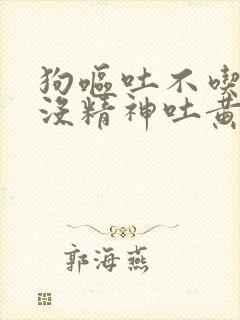 狗嘔吐不喫
沒精神吐黃
郭海燕